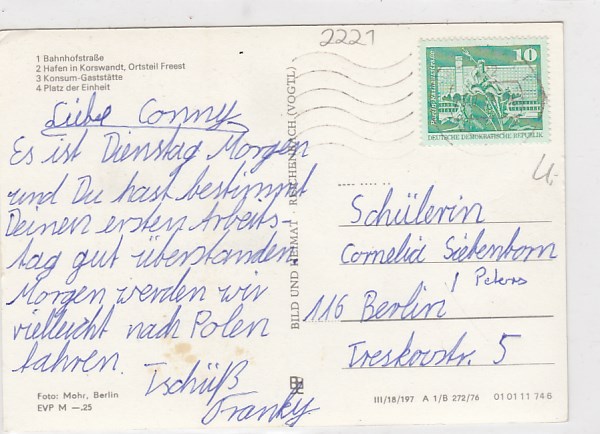 1 Bahnhofstraße
2 Hafen in Korswandt, Ortsteil Freest
3 Konsum-Gaststätte
4 Platz der Einheit
Liebe Conny
Es ist Dienstag Morgen
und Du hast bestimmt
Deinen ersten Arbeits-
tag gut überstanden
Morgen werden wir
vielleicht nach Polen
fahren.
Tschüß
Franky
Foto: Mohr, Berlin
EVP M —.25
BILD UND HEIMAT · REICHENBACH (VOGTL)
2221
10
DEUTSCHE DEMOKRATISCHE REPUBLIK
4,-
Schülerin
Cornelia Siebenborn
/ Peters
116 Berlin
Treskowstr. 5
III/18/197 A 1/B 272/76 01 01 11 746